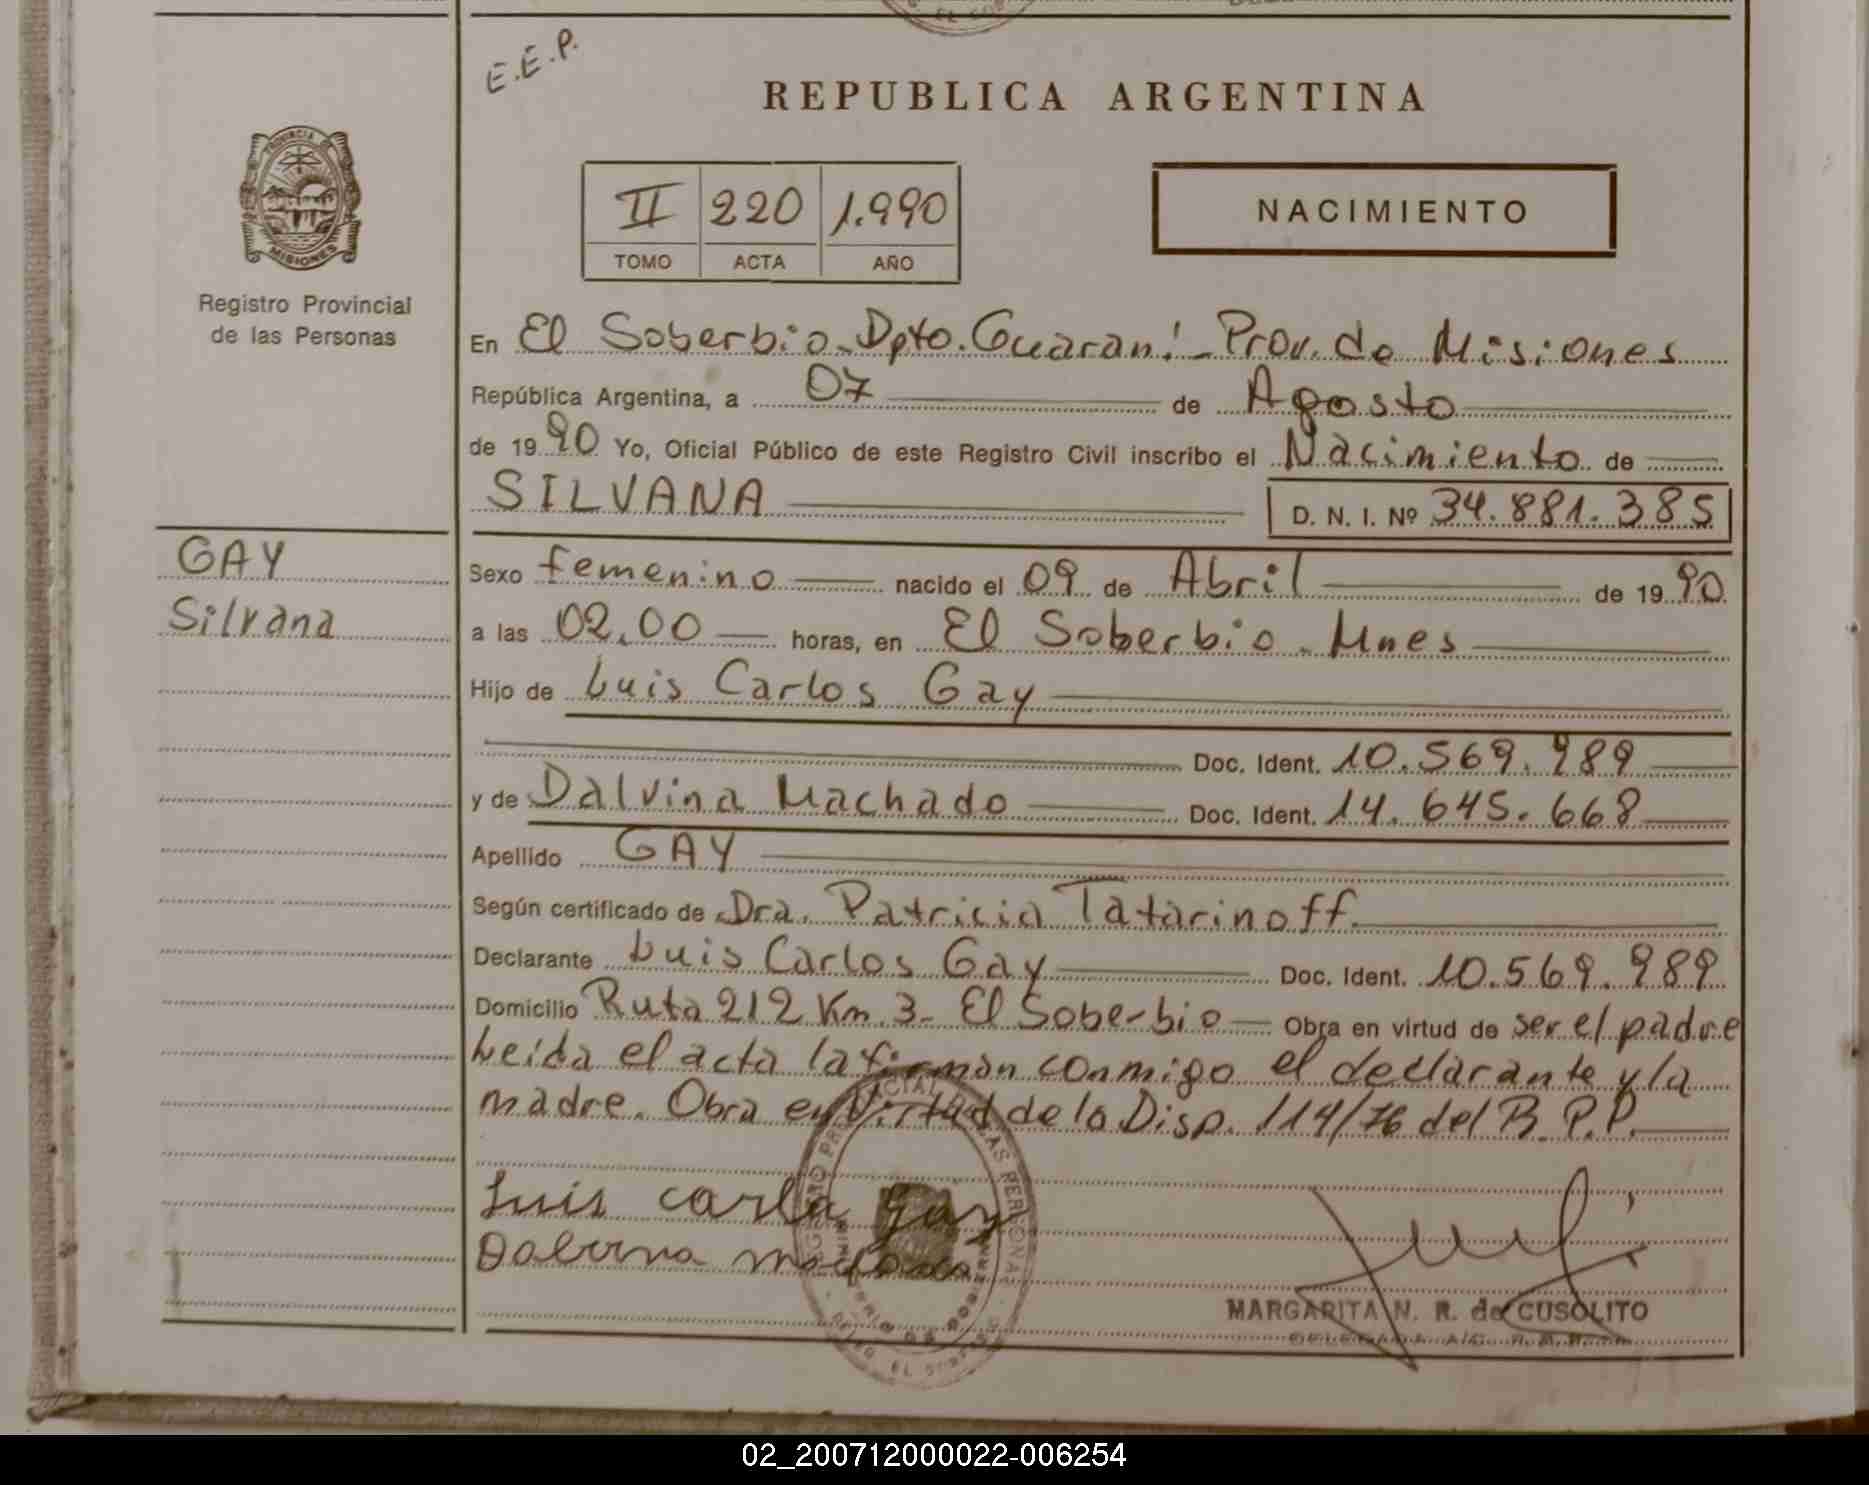 E.E.P.
REPUBLICA ARGENTINA
II 220 1.990
TOMO ACTA AÑO
NACIMIENTO
PROVINCIA DE
MISIONES
Registro Provincial
de las Personas
En El Soberbio - Dpto. Guaraní - Prov. de Misiones
República Argentina, a 07 de Agosto
de 1990 Yo, Oficial Público de este Registro Civil inscribo el Nacimiento de
SILVANA
D. N. I. Nº 34.881.385
GAY
Silvana
Sexo femenino nacido el 09 de Abril de 1990
a las 02,00 horas, en El Soberbio - Mnes
Hijo de Luis Carlos Gay
Doc. Ident. 10.569.989
y de Dalvina Machado Doc. Ident. 14.645.668
Apellido GAY
Según certificado de Dra. Patricia Tatarinoff
Declarante Luis Carlos Gay Doc. Ident. 10.569.989
Domicilio Ruta 212 Km. 3 - El Soberbio Obra en virtud de ser el padre
Leída el acta la firman conmigo el declarante y la
madre. Obra en virtud de la Disp. 114/76 del R.P.P.
Luis Carlo Gay
MARGARITA N. R. de CUSOLITO
02_200712000022-006254